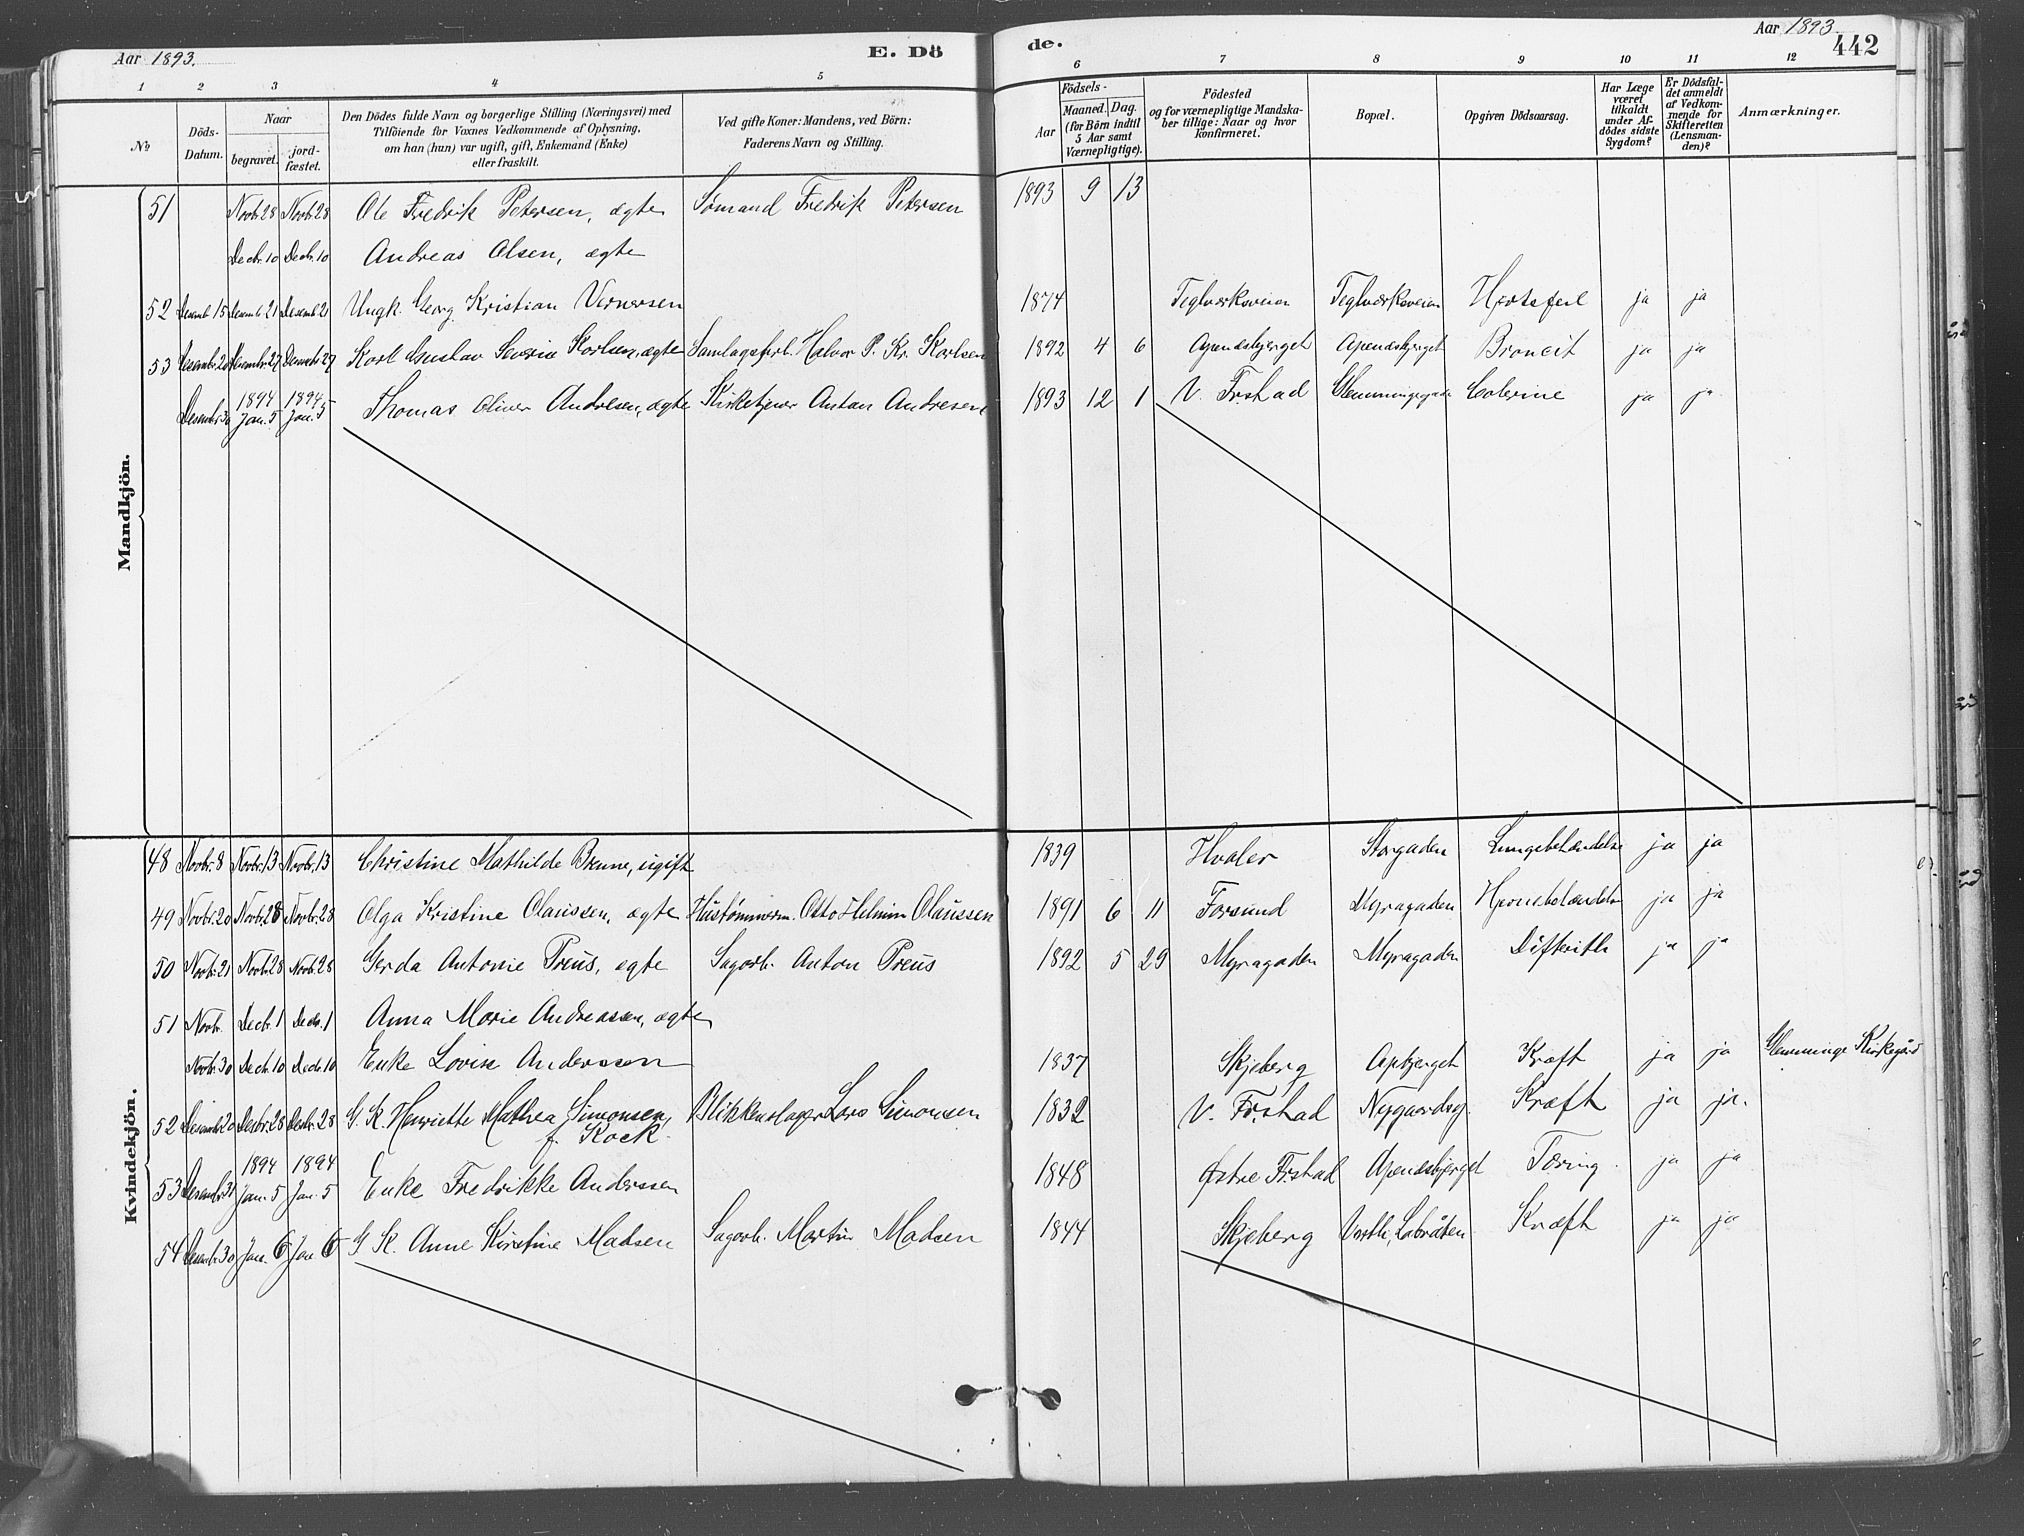 Aar 1893. E. Dö
de. Aar 1893. 442
1 2 3 4 5 6 7 8 9 10 11 12
No
Döds-Datum.
Naar begravet. jordfæstet.
Den Dödes fulde Navn og borgerlige Stilling (Næringsvei) med
Tilföiende for Voxnes Vedkommende af Oplysning,
om han (hun) var ugift, gift, Enkemand (Enke)
eller fraskilt.
Ved gifte Koner: Mandens, ved Börn:
Faderens Navn og Stilling.
Födsels-
Aar Maaned. Dag.
(for Börn indtil
5 Aar samt
Værnepligtige).
Födested
og for værnepligtige Mandska-
ber tillige: Naar og hvor
konfirmeret.
Bopæl.
Opgiven Dödsaarsag.
Har Læge
været
tilkaldt
under Af-
dödes sidste
Sygdom?
Er Dödsfal-
det anmeldt
af Vedkom-
mende for
Skifteretten
(Lensman-
den)?
Anmærkninger.
Mandkjön.
51 Novbr 28 Novbr 28 Ole Fredrik Petersen, ægte Sømand Fredrik Petersen 1893 9 13
Decbr. 10 Decbr. 10 Andreas Olsen, ægte
52 Desemb 15 Desemb 21 Desemb 21 Ungk. Georg Kristian Vernersen 1874 Teglverksveien Teglverksveien Hjertefeil ja ja
53 Karl Gustav Severin Karlsen, ægte Samlagsfirl. Halvor P. Kr. Karlsen 1892 4 6 Apenesbjerget Apenesbjerget Broncit ja ja
1894 1894
Desembr 30 Jan. 5 Jan. 5 Thomas Oliver Andresen, ægte Kirketjener Anton Andresen 1893 12 1 V. Frstad Glemmingegade Colerine ja ja
Kvindekjön.
48 Novbr. 8 Novbr. 13 Novbr. 13 Christine Mathilde Brune, ugift 1839 Hvaler Storgaden Lungebetændelse ja ja
49 Novbr. 20 Novbr. 28 Novbr. 28 Olga Kristine Claussen, ægte Hustømmerm. Otto Helmin Claussen 1891 6 11 Forsund Myragaden Hjernebetændelse ja ja
50 Novbr. 21 Novbr. 28 Novbr. 28 Gerda Antonie Preus, ægte Sagarb. Anton Preus 1892 5 29 Myragaden Myragaden Difterith ja ja
51 Novbr. Decbr. 1 Decbr. 1 Anna Marie Andreassen, ægte
Novbr. 30 Decbr. 10 Decbr. 10 Enke Lovise Anderssen 1837 Skjeberg Apbjerget Kræft ja ja Glemminge Kirkegård
52 Desembr 20 Desbr. 28 Desbr. 28 G. K. Henriette Mathea Simonsen, Blikkenslager Lars Simonsen 1832 V. Frstad Nygaardsg. Kræft ja ja.
f. Kock.
1894 1894
53 Desembr 31 Jan. 5 Jan. 5 Enke Fredrikke Anderssen 1848 Østre Frstad Apenesbjerget Tæring. ja ja
54 Desembr 30 Jan. 6 Jan 6 G K. Anne Kirstine Madsen Sagarb. Martin Madsen 1844 Skjeberg Labråten Kræft ja ja